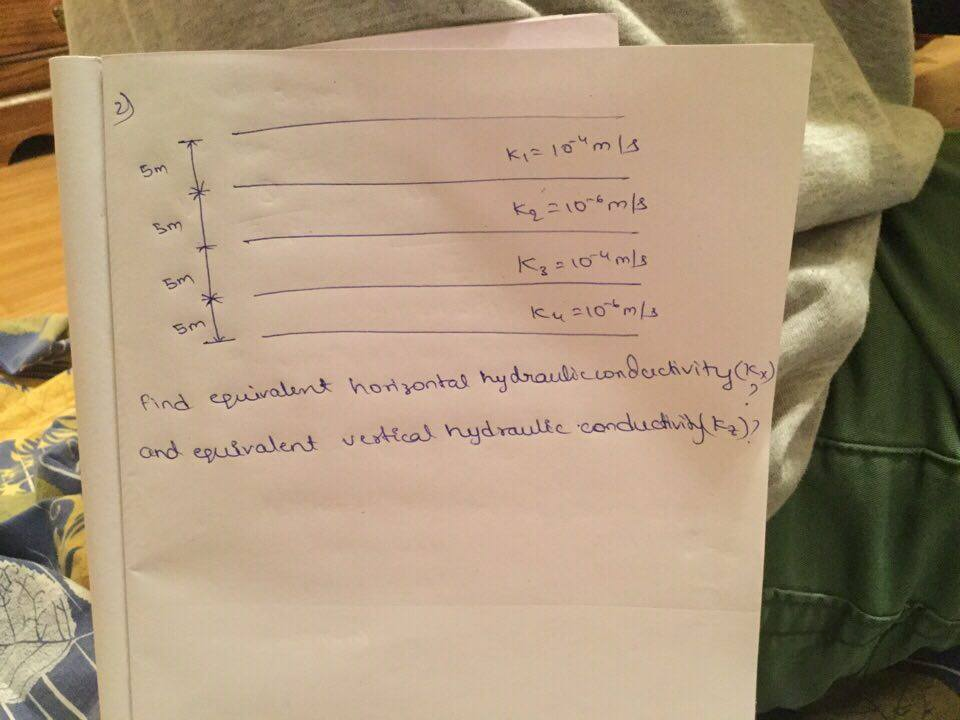 2)
5m
K₁ = 10⁻⁴ m/s
5m
K₂ = 10⁻⁶ m/s
5m
K₃ = 10⁻⁴ m/s
5m
K₄ = 10⁻⁶ m/s
Find equivalent horizontal hydraulic conductivity (Kx)?
and equivalent vertical hydraulic conductivity (Kz)?